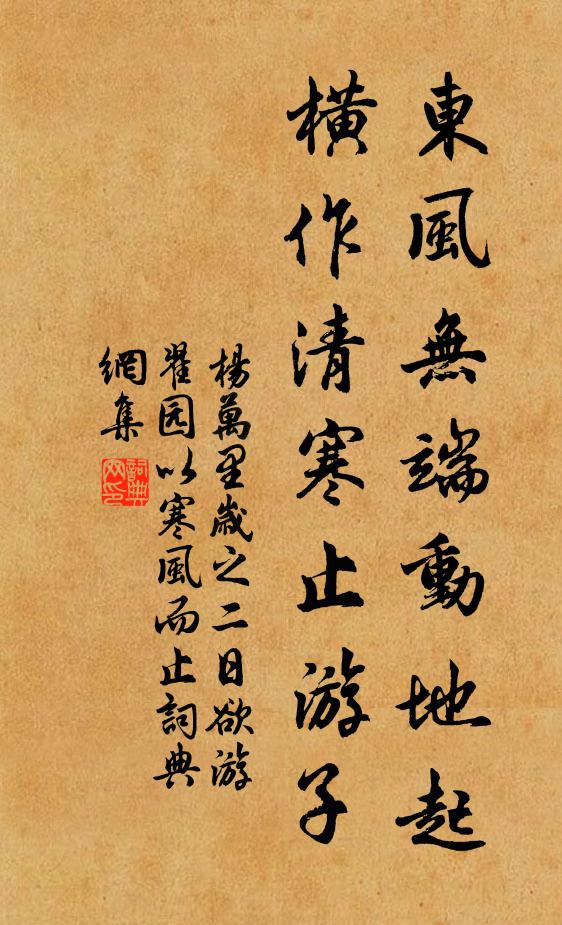 東風無端動地起
橫作清寒止游子
楊萬里歲之二日欲游
翟园以寒風而止詞典
網集
詞典
网印